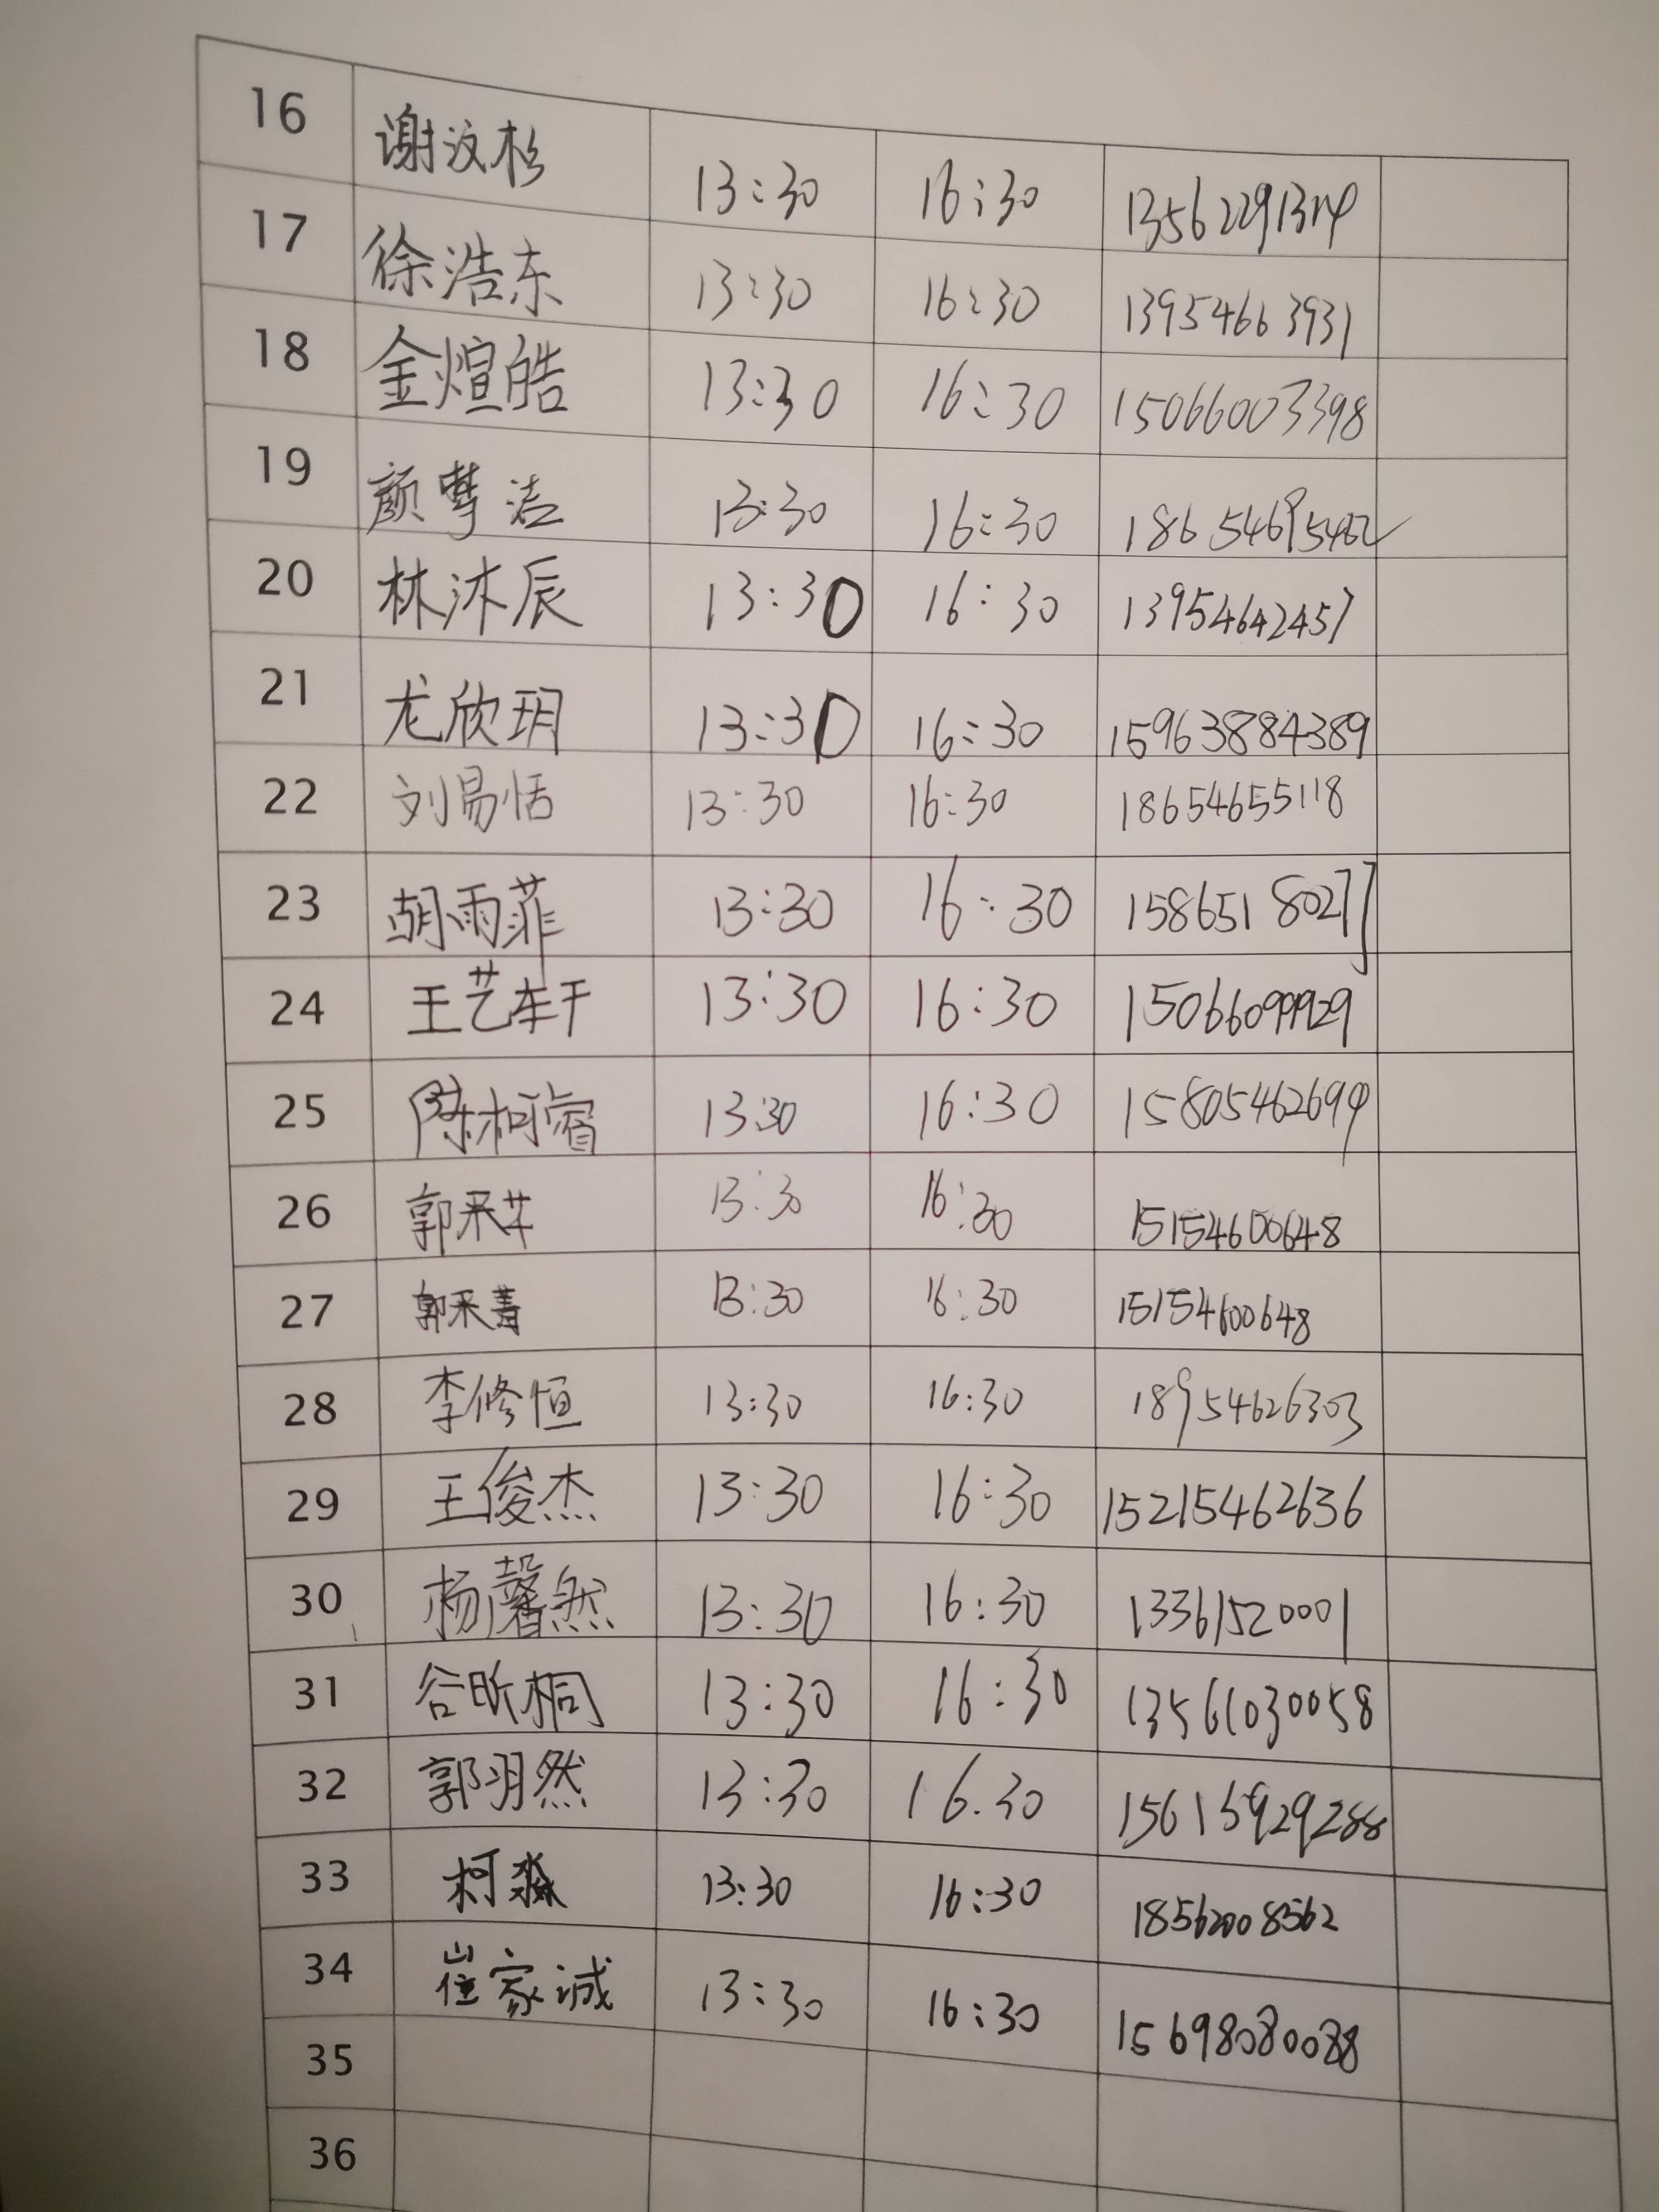 16 谢汶杉 13:30 16:30 13562291314
17 徐浩东 13:30 16:30 13954663931
18 金煊皓 13:30 16:30 15066003398
19 颜 13:30 16:30 18654695462
20 林沐辰 13:30 16:30 13954642457
21 尤欣玥 13:30 16:30 15963884389
22 刘易恬 13:30 16:30 18654655118
23 胡雨菲 13:30 16:30 15865180277
24 王艺轩 13:30 16:30 15066099929
25 陈柯睿 13:30 16:30 15805462694
26 郭采芊 13:30 16:30 15154600648
27 郭采菁 13:30 16:30 15154600648
28 李修恒 13:30 16:30 18954626303
29 王俊杰 13:30 16:30 15215462636
30 杨馨然 13:30 16:30 13361520001
31 谷昕桐 13:30 16:30 13561030058
32 郭羽然 13:30 16.30 15615929288
33 柯淼 13:30 16:30 18562008562
34 崔家诚 13:30 16:30 15698080088
35
36